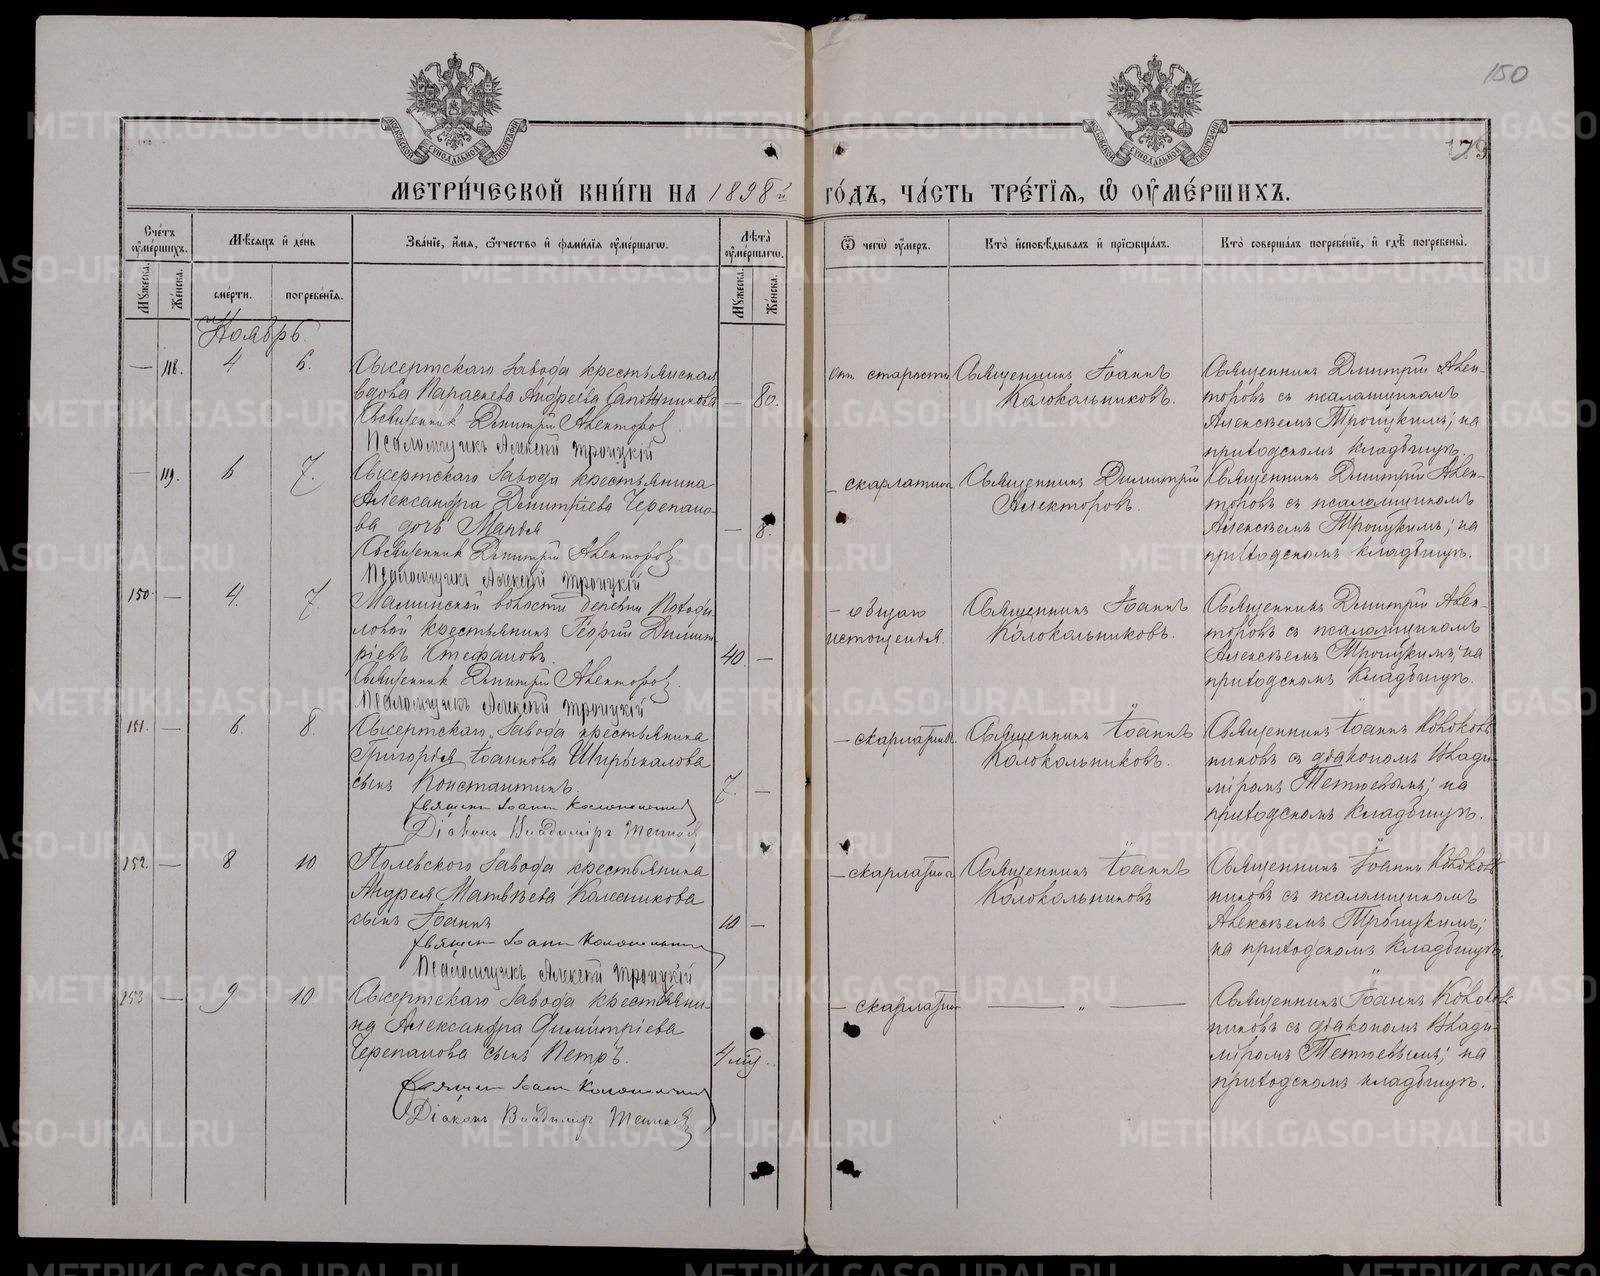 150
179
МЕТРИ́ЧЕСКОЙ КНИ́ГИ НА 1898й ГО́ДЪ, ЧА́СТЬ ТРЕ́ТІѦ, Ѡ҆ ОУ҆МЕ́РШИХЪ.
Сче́тъ оу҆ме́ршихъ.
Мѣ́сяцъ и҆ де́нь
Зва́ніе, и҆́мя, ѻ҆́тчество и҆ фами́лія оу҆ме́ршагѡ.
Лѣта̀ оу҆ме́ршагѡ.
Ѿ чегѡ̀ оу҆́меръ.
Кто̀ и҆сповѣ́дывалъ и҆ прїѡбща́лъ.
Кто̀ соверша́лъ погребе́ніе, и҆ гдѣ̀ погребены̀.
Мꙋ́жеска.
Же́нска.
сме́рти.
погребе́нія.
Мꙋ́жеска.
Же́нска.
Ноябрь.
— 118. 4 6.
Сысертскаго Завода крестьянская
вдова Параскева Андреева Сапожникова — 80.
Священник Димитрій Авенторов
Псаломщикъ Алексѣй Троицкій
отъ старости
Священникъ Іоаннъ
Колокольниковъ.
Священникъ Димитрій Авен-
торовъ съ псаломщикомъ
Алексѣемъ Троицкимъ; на
приходскомъ кладбищѣ.
— 119. 6 7.
Сысертскаго Завода крестьянина
Александра Димитріева Черепано-
ва дочь — 8.
Священник Димитрій Авенторов
Псаломщикъ Алексѣй Троицкій
— скарлатина
Священникъ Димитрій
Священникъ Димитрій Авен-
торовъ съ псаломщикомъ
Алексѣемъ Троицкимъ; на
приходскомъ кладбищѣ.
150 — 4. 7
волости деревни
крестьянинъ Георгій Димит-
ріевъ Стефановъ. 40. —
Священник Димитрій Авенторов.
Псаломщикъ Алексѣй Троицкій
— общаго
истощенія.
Священникъ Іоаннъ
Колокольниковъ.
Священникъ Димитрій Авен-
торовъ съ псаломщикомъ
Алексѣемъ Троицкимъ; на
приходскомъ кладбищѣ.
151. — 6. 8.
Сысертскаго Завода крестьянина
Григорія Іоаннова Ширыкалова
сынъ Константинъ. 7. —
Священ Іоанн Колокольник
Діаконъ Владиміръ
— скарлатины.
Священникъ Іоаннъ
Колокольниковъ.
Священникъ Іоаннъ Коколь-
никовъ съ діакономъ Влади-
міромъ; на
приходскомъ кладбищѣ.
152. — 8 10
Полевского Завода крестьянина
Андрея Матвѣева Колесникова
сынъ Іоаннъ 10 —
Священ Іоанн Колокольник
Псаломщикъ Алексѣй Троицкій
— скарлатина
Священникъ Іоаннъ
Колокольниковъ
Священникъ Іоаннъ Коколь-
никовъ съ псаломщикомъ
Алексѣемъ Троицкимъ;
на приходскомъ кладбищѣ.
153 — 9 10
Сысертскаго Завода крестьяни-
на Александра Димитріева
Черепанова сынъ Петръ. 4
Священ Іоанн Колокольник
Діаконъ Владиміръ
— скарлатин
— „ —
Священникъ Іоаннъ Коколь-
никовъ съ діакономъ Влади-
міромъ; на
приходскомъ кладбищѣ.
METRIKI.GASO-URAL.RU